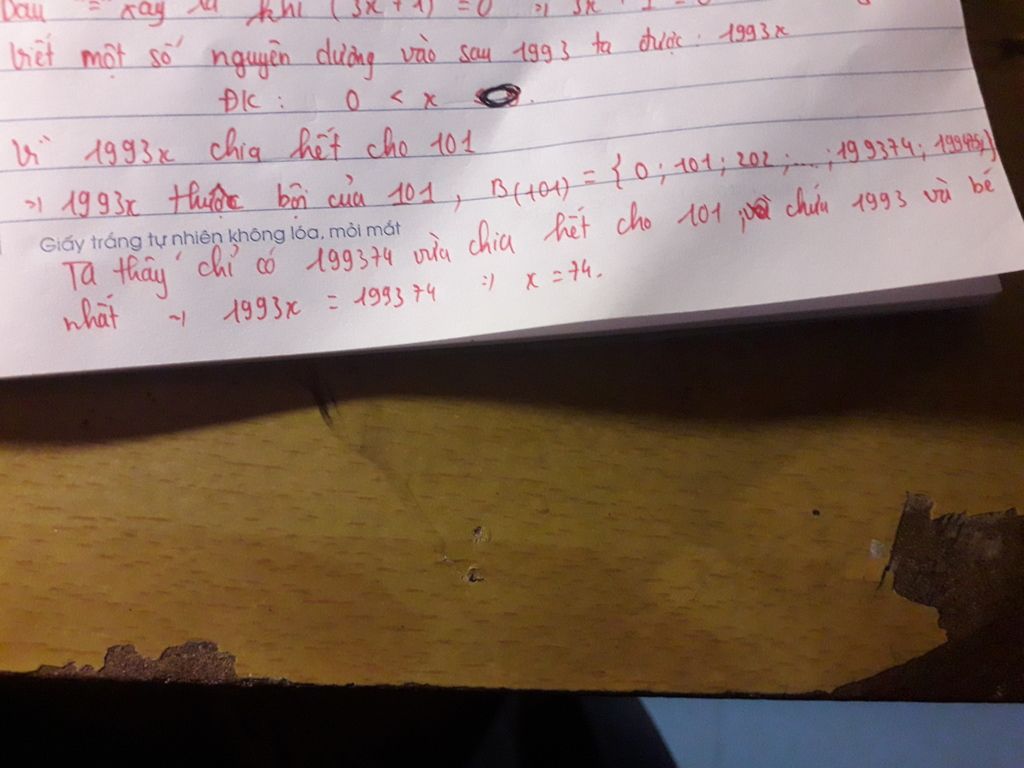 Dấu "=" xảy ra khi (3x+1) =0 => 3x
Viết một số nguyên dương vào sau 1993 ta được: 1993x
ĐK: 0 < x
Vì 1993x chia hết cho 101
=> 1993x thuộc bội của 101, B(101) = {0; 101; 202; ...; 199374; 199475}
Giấy trắng tự nhiên không lóa, mỏi mắt
Ta thấy chỉ có 199374 vừa chia hết cho 101 chứa 1993 và bé
nhất => 1993x = 199374 => x = 74.